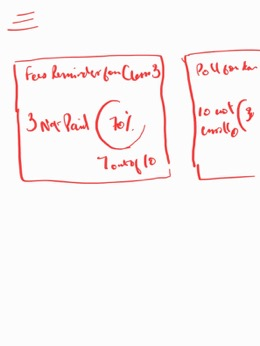 Fees Reminder for Class 3
3 Not Paid
70%
7 out of 10
Poll for
10 not